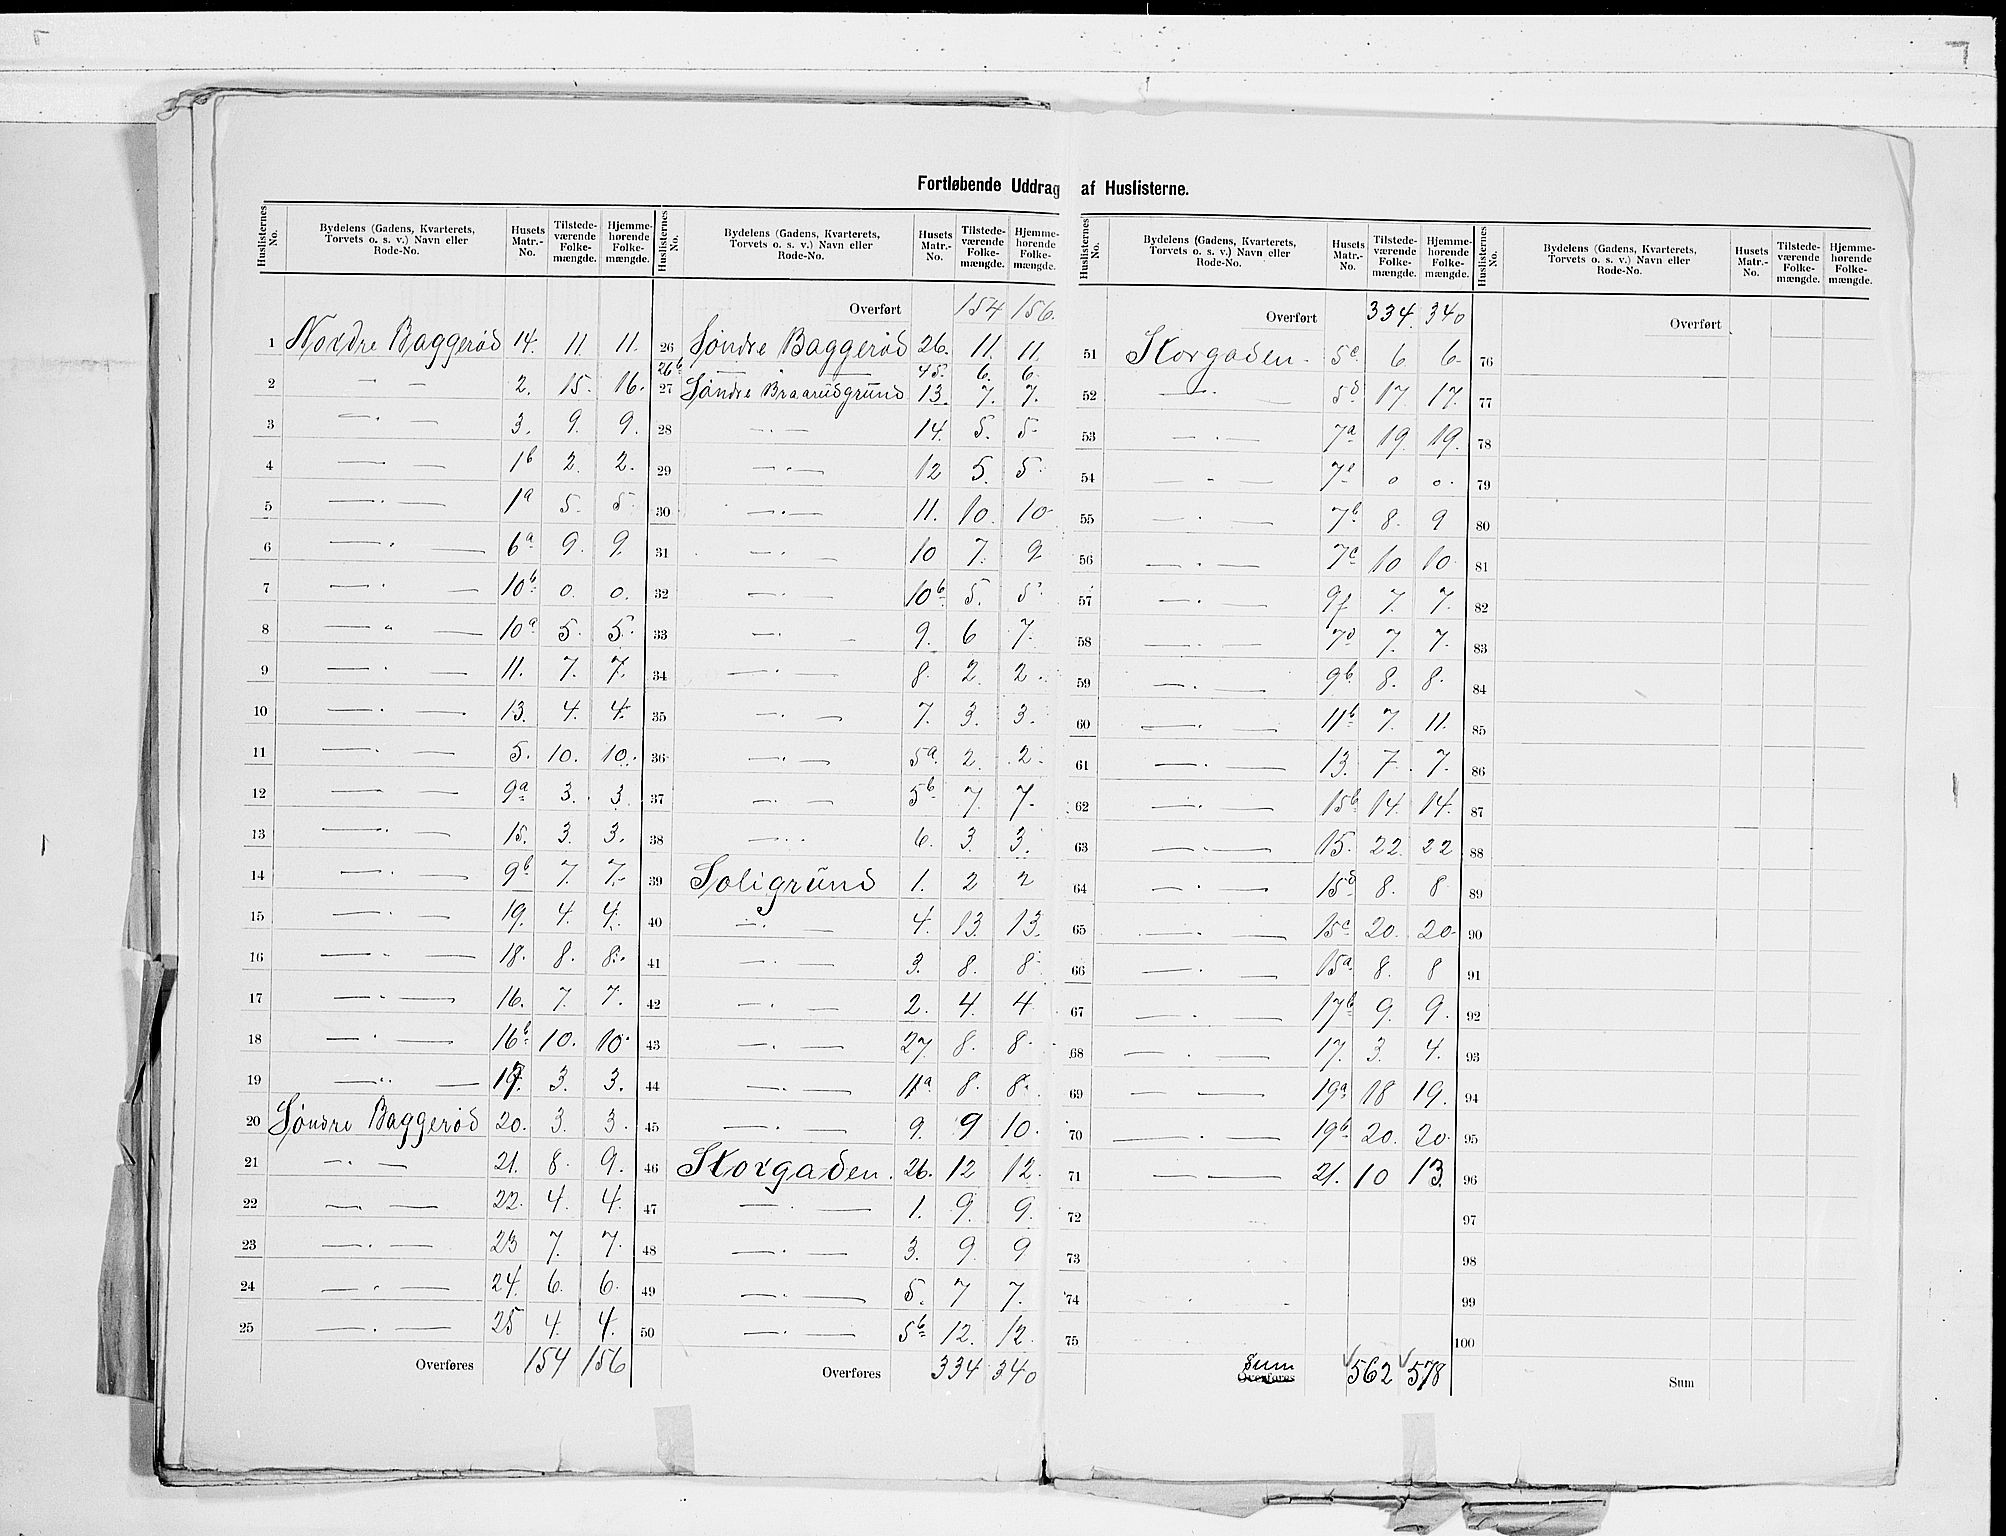 Fortløbende Uddrag af Huslisterne.
Huslisternes No. | Bydelens (Gadens, Kvarterets, Torvets o. s. v.) Navn eller Rode-No. | Husets Matr.-No. | Tilstede-værende Folke-mængde. | Hjemme-hørende Folke-mængde.
1 Nordre Baggerød 14. 11. 11.
2 — — 2. 15. 16.
3 — " — 3. 9. 9.
4 — — 1b 2. 2.
5 — " — 1a 5. 5.
6 — " — 6a 9. 9.
7 — " — 10b 0. 0.
8 — " — 10a 5. 5.
9 — " — 11. 7. 7.
10 — " — 13. 4. 4.
11 — " — 5. 10. 10.
12 — " — 9a 3. 3.
13 — " — 15. 3. 3.
14 — " — 9b 7. 7.
15 — " — 19. 4. 4.
16 — " — 18. 8. 8.
17 — " — 16. 7. 7.
18 — " — 16b 10. 10.
19 — " — 17. 3. 3.
20 Søndre Baggerød 20. 3. 3.
21 — " — 21. 8. 9.
22 — — 22. 4. 4.
23 — " — 23 7. 7.
24 — " — 24. 6. 6.
25 — " — 25 4. 4.
Overføres 154 156
Huslisternes No. | Bydelens (Gadens, Kvarterets, Torvets o. s. v.) Navn eller Rode-No. | Husets Matr.-No. | Tilstede-værende Folke-mængde. | Hjemme-hørende Folke-mængde.
Overført 154 156.
26 Søndre Baggerød 26. 11. 11.
26b — — 45. 6. 6.
27 Søndre Braarudgrund 13. 7. 7.
28 — " — 14. 5. 5.
29 — " — 12 5. 5.
30 — " — 11. 10. 10.
31 — " — 10 7. 9
32 — " — 10b 5. 5.
33 — " — 9. 6 7.
34 — " — 8. 2. 2.
35 — " — 7. 3. 3.
36 — " — 5a 2. 2.
37 — " — 5b 7. 7.
38 " " 6. 3. 3.
39 Soligrund 1. 2 2
40 — " — 4. 13. 13.
41 — " — 3. 8. 8.
42 — " — 2. 4. 4
43 — " — 27. 8. 8.
44 — " — 11a 8. 8.
45 — " — 9. 9 10.
46 Storgaden. 26. 12 12.
47 — " — 1. 9. 9.
48 — " — 3. 9. 9
49 — " — 5. 7 7.
50 — " — 5b 12. 12.
Overføres 334 340
Huslisternes No. | Bydelens (Gadens, Kvarterets, Torvets o. s. v.) Navn eller Rode-No. | Husets Matr.-No. | Tilstede-værende Folke-mængde. | Hjemme-hørende Folke-mængde.
Overført 334. 340
51 Storgaden. 5c 6. 6.
52 — " — 5d 17. 17.
53 — " — 7a 19. 19.
54 — " — 7e 0 0.
55 — " — 7b 8. 9
56 — " — 7c 10 10
57 — " — 9f 7. 7.
58 — " — 7d 7. 7.
59 — " — 9b 8. 8.
60 — " — 11b 7. 11.
61 — " — 13. 7. 7.
62 — " — 15b 14. 14.
63 — " — 15. 22. 22
64 — " — 15d 8. 8
65 — " — 15c 20. 20.
66 — " — 15a 8. 8
67 — " — 17b 9. 9.
68 — " — 17. 3. 4.
69 — " — 19a 18 19.
70 — " — 19b 20. 20.
71 — — 21. 10 13.
72
73
74
75
Sum Overføres 562 578
Huslisternes No. | Bydelens (Gadens, Kvarterets, Torvets o. s. v.) Navn eller Rode-No. | Husets Matr.-No. | Tilstede-værende Folke-mængde. | Hjemme-hørende Folke-mængde.
Overført
76
77
78
79
80
81
82
83
84
85
86
87
88
89
90
91
92
93
94
95
96
97
98
99
100
Sum